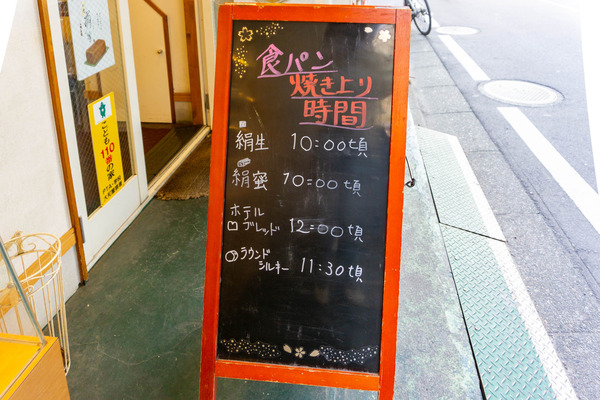 食パン
焼き上り
時間
絹生 10:00頃
絹蜜 10:00頃
ホテル
ブレッド 12:00頃
ラウンド
シルキー 11:30頃
こども
110番の家